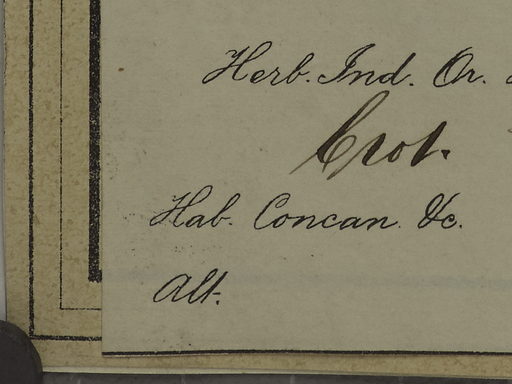 Herb. Ind. Or.
Crot.
Hab. Concan &c.
Alt.